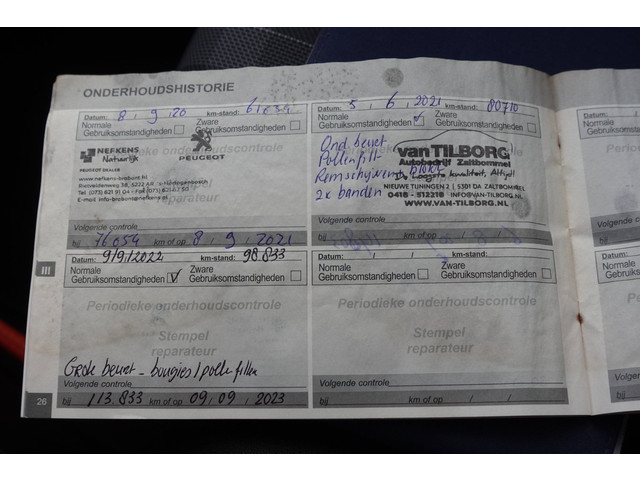 ONDERHOUDSHISTORIE
Datum: 8 , 9 , 20 km-stand: 61054
Normale
Gebruiksomstandigheden
Zware
Gebruiksomstandigheden
NEFKENS
Natuurlijk
PEUGEOT
PEUGEOT DEALER
www.nefkens-brabant.nl
Rietveldenweg 38, 5222 AR 's-Hertogenbosch
Tel. (073) 621 91 04
E-mail: info-brabant@nefkens.nl
Periodieke onderhoudscontrole
Volgende controle
bij 76054 km of op 8 , 9 , 2021
Datum: 5 , 6 , 2021 km-stand: 80710
Normale
Gebruiksomstandigheden
Zware
Gebruiksomstandigheden
Ond beurt
Pollenfilt
Remschijven+ blokk
2x banden
vanTILBORG
Autobedrijf Zaltbommel
De Laagste kwaliteit, Altijd!
NIEUWE TUNINGEN 2 | 5301 DA ZALTBOMMEL
0418 - 512218 INFO@VAN-TILBORG.NL
WWW.VAN-TILBORG.NL
Volgende controle
bij km of op
Datum: 9/9/2022 km-stand: 98.833
Normale
Gebruiksomstandigheden
Zware
Gebruiksomstandigheden
Periodieke onderhoudscontrole
Stempel
reparateur
Grote beurt - bougies / pollenfilter
Volgende controle
bij 113.833 km of op 09 , 09 , 2023
Datum: / / km-stand:
Normale
Gebruiksomstandigheden
Zware
Gebruiksomstandigheden
Periodieke onderhoudscontrole
Stempel
reparateur
Volgende controle
bij km of op / /
III
26